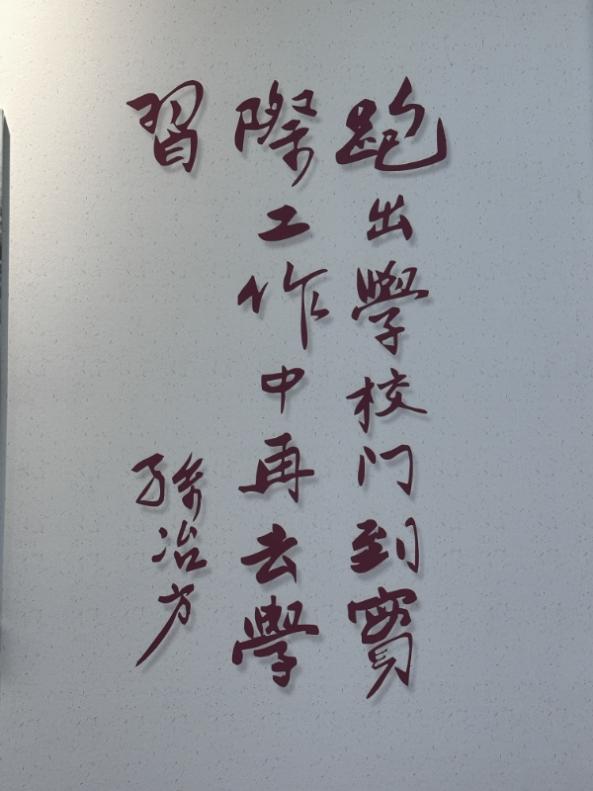 跑出學校门到實
際工作中再去學
習
孫冶方